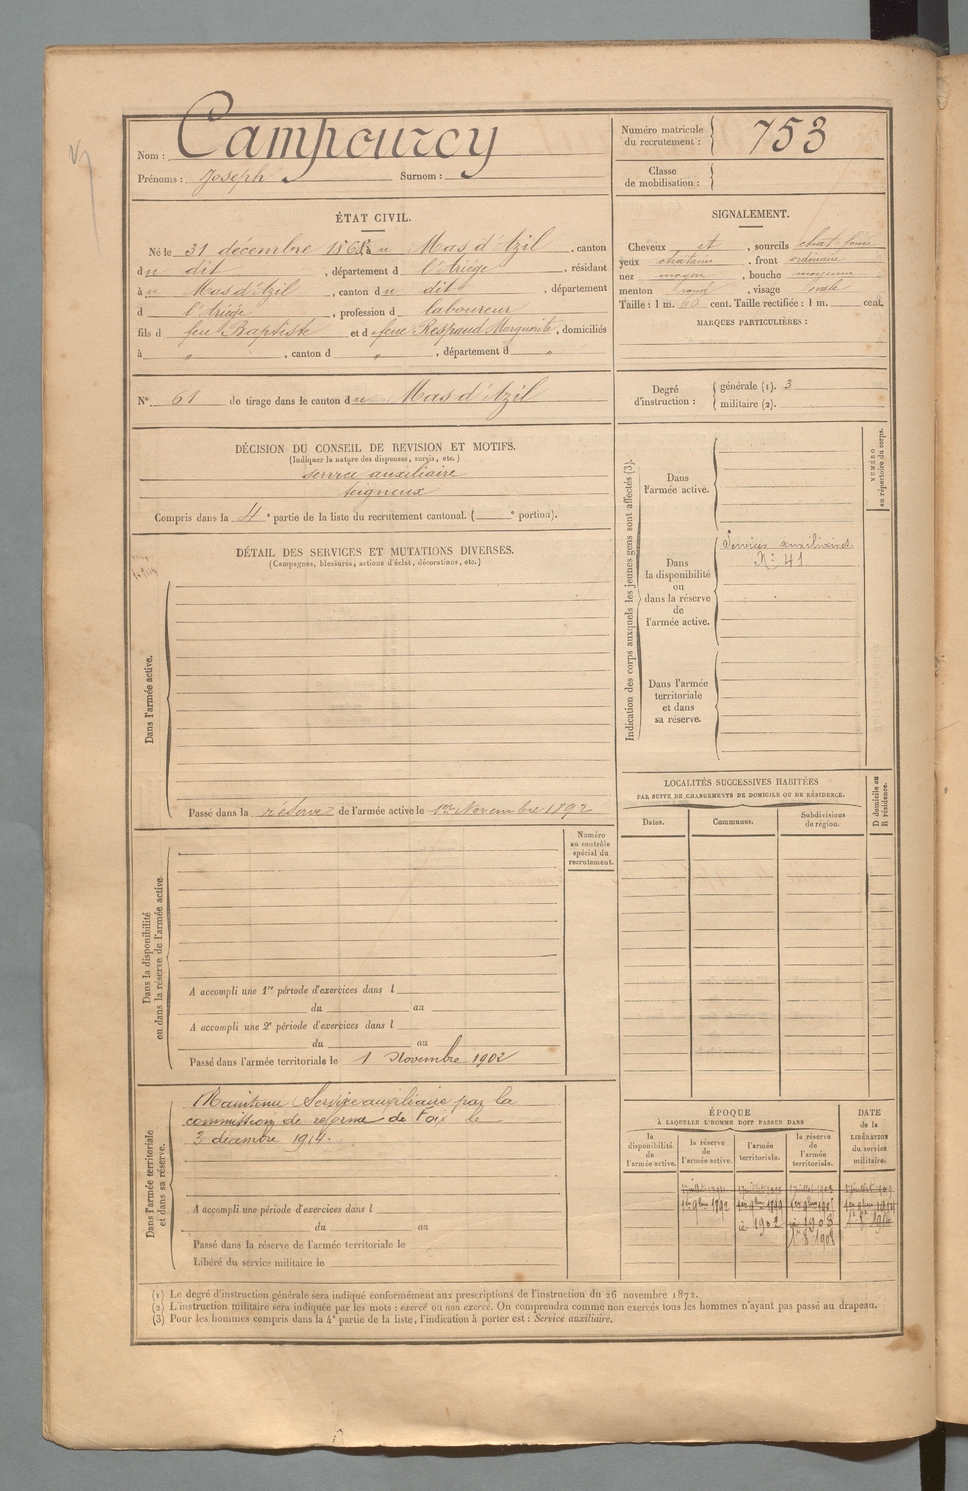 Nom : Campourcy
Prénoms : Joseph Surnom :
Numéro matricule du recrutement : 753
Classe de mobilisation :
ÉTAT CIVIL.
Né le 31 décembre à u Mas d'Azil, canton
du dit, département d l'Ariège, résidant
à u Mas d'Azil, canton du dit, département
d l'Ariège, profession d laboureur
fils d feu Baptiste et d feue Respaud Marguerite, domiciliés
à " , canton d " , département d "
SIGNALEMENT.
Cheveux et , sourcils chat. foncé
yeux chatains , front ordinaire
nez moyen , bouche moyenne
menton rond , visage ovale
Taille : 1 m. 66 cent. Taille rectifiée : 1 m. cent.
MARQUES PARTICULIÈRES :
N° 61 de tirage dans le canton du Mas d'Azil
Degré d'instruction : générale (1). 3
militaire (2).
DÉCISION DU CONSEIL DE REVISION ET MOTIFS.
(Indiquer la nature des dispenses, sursis, etc.)
service auxiliaire
teigneux
Compris dans la 4e partie de la liste du recrutement cantonal. ( e portion).
DÉTAIL DES SERVICES ET MUTATIONS DIVERSES.
(Campagnes, blessures, actions d'éclat, décorations, etc.)
Dans l'armée active.
Passé dans la réserve de l'armée active le 1er Novembre 1892
Indication des corps auxquels les jeunes gens sont affectés (3).
NUMÉRO au répertoire du corps.
Dans l'armée active.
Dans la disponibilité ou dans la réserve de l'armée active.
Services auxiliaires.
N° 41
Dans l'armée territoriale et dans sa réserve.
Dans la disponibilité ou dans la réserve de l'armée active.
Numéro au contrôle spécial du recrutement.
A accompli une 1re période d'exercices dans l
du au
A accompli une 2e période d'exercices dans l
du au
Passé dans l'armée territoriale le 1 Novembre 1902
LOCALITÉS SUCCESSIVES HABITÉES
PAR SUITE DE CHANGEMENTS DE DOMICILE OU DE RÉSIDENCE.
D domicile ou R résidence.
Dates. Communes. Subdivisions de région.
Dans l'armée territoriale et dans sa réserve.
Maintenu Service auxiliaire par la
commission de réforme de Foix le
3 décembre 1914.
A accompli une période d'exercices dans l
du au
Passé dans la réserve de l'armée territoriale le
Libéré du service militaire le
ÉPOQUE
À LAQUELLE L'HOMME DOIT PASSER DANS
la disponibilité de l'armée active. la réserve de l'armée active. l'armée territoriale. la réserve de l'armée territoriale.
DATE de la LIBÉRATION du service militaire.
1er 9bre 1892
1902
(1) Le degré d'instruction générale sera indiqué conformément aux prescriptions de l'instruction du 26 novembre 1872.
(2) L'instruction militaire sera indiquée par les mots : exercé ou non exercé. On comprendra comme non exercés tous les hommes n'ayant pas passé au drapeau.
(3) Pour les hommes compris dans la 4e partie de la liste, l'indication à porter est : Service auxiliaire.